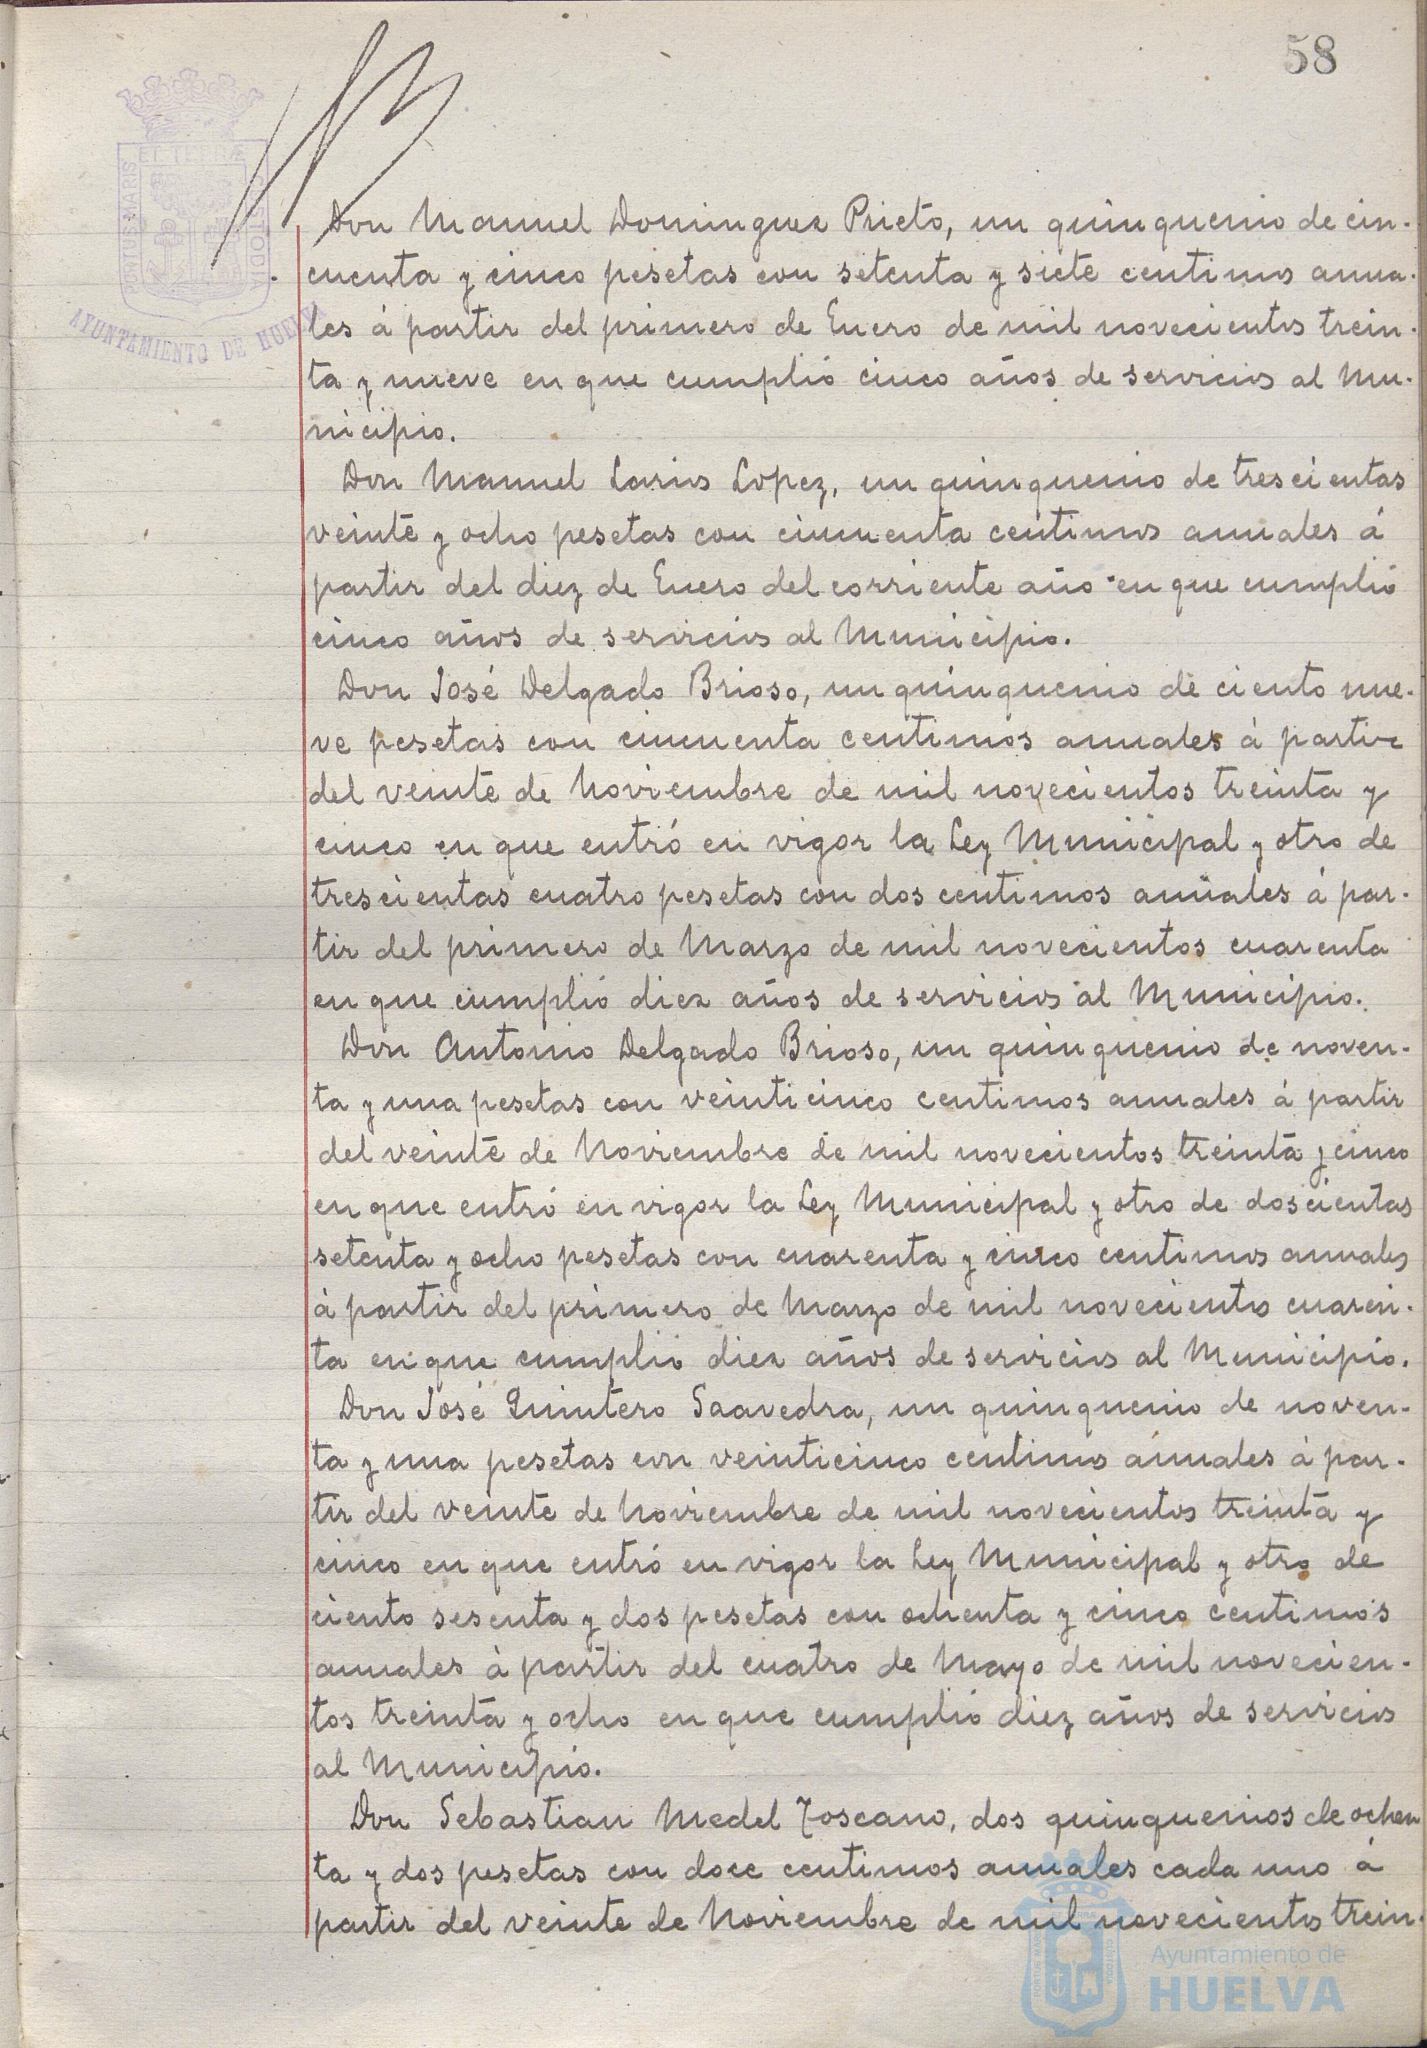 58
PORTUS MARIS
ET TERRÆ
CUSTODIA
AYUNTAMIENTO DE HUELVA
Don Manuel Dominguez Prieto, un quinquenio de cin-
cuenta y cinco pesetas con setenta y siete centimos anua-
les á partir del primero de Enero de mil novecientos trein-
ta y nueve en que cumplió cinco años de servicios al Mu-
nicipio.
Don Manuel Larios Lopez, un quinquenio de trescientas
veinte y ocho pesetas con cincuenta centimos anuales á
partir del diez de Enero del corriente año en que cumplió
cinco años de servicios al Municipio.
Don José Delgado Brioso, un quinquenio de ciento nue-
ve pesetas con cincuenta centimos anuales á partir
del veinte de Noviembre de mil novecientos treinta y
cinco en que entró en vigor la Ley Municipal y otro de
trescientas cuatro pesetas con dos centimos anuales á par-
tir del primero de Marzo de mil novecientos cuarenta
en que cumplió diez años de servicios al Municipio.
Don Antonio Delgado Brioso, un quinquenio de noven-
ta y una pesetas con veinticinco centimos anuales á partir
del veinte de Noviembre de mil novecientos treinta y cinco
en que entró en vigor la Ley Municipal y otro de doscientas
setenta y ocho pesetas con cuarenta y cinco centimos anuales
á partir del primero de Marzo de mil novecientos cuaren-
ta en que cumplió diez años de servicios al Municipio.
Don José Quintero Saavedra, un quinquenio de noven-
ta y una pesetas con veinticinco centimos anuales á par-
tir del veinte de Noviembre de mil novecientos treinta y
cinco en que entró en vigor la Ley Municipal y otro de
ciento sesenta y dos pesetas con ochenta y cinco centimos
anuales á partir del cuatro de Mayo de mil novecien-
tos treinta y ocho en que cumplió diez años de servicios
al Municipio.
Don Sebastian Medel Toscano, dos quinquenios de ochen
ta y dos pesetas con doce centimos anuales cada uno á
partir del veinte de Noviembre de mil novecientos trein-
Ayuntamiento de
HUELVA